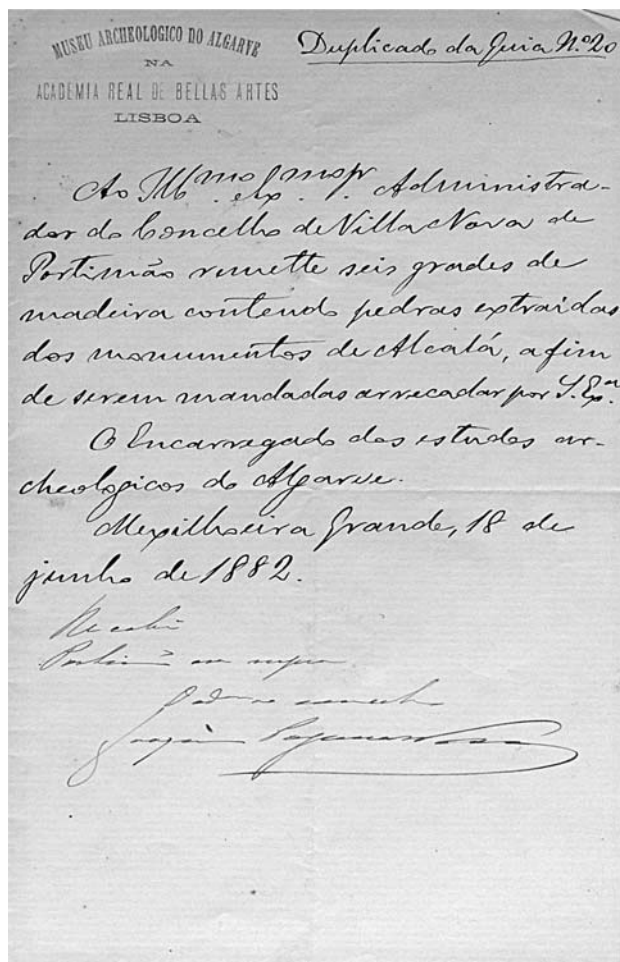 MUSEU ARCHEOLOGICO DO ALGARVE
NA
ACADEMIA REAL DE BELLAS ARTES
LISBOA
Duplicado da Guia N.º 20
Ao Ill.mo Ex.mo Sr. Administra-
dor do Concelho de Villa Nova de
Portimão remette seis grades de
madeira contendo pedras extraidas
dos monumentos de Alcalá, afim
de serem mandadas arrecadar por S. Ex.a
O Encarregado dos estudos ar-
cheologicos do Algarve.
Mexilhoeira Grande, 18 de
junho de 1882.
Recebi
Portimão